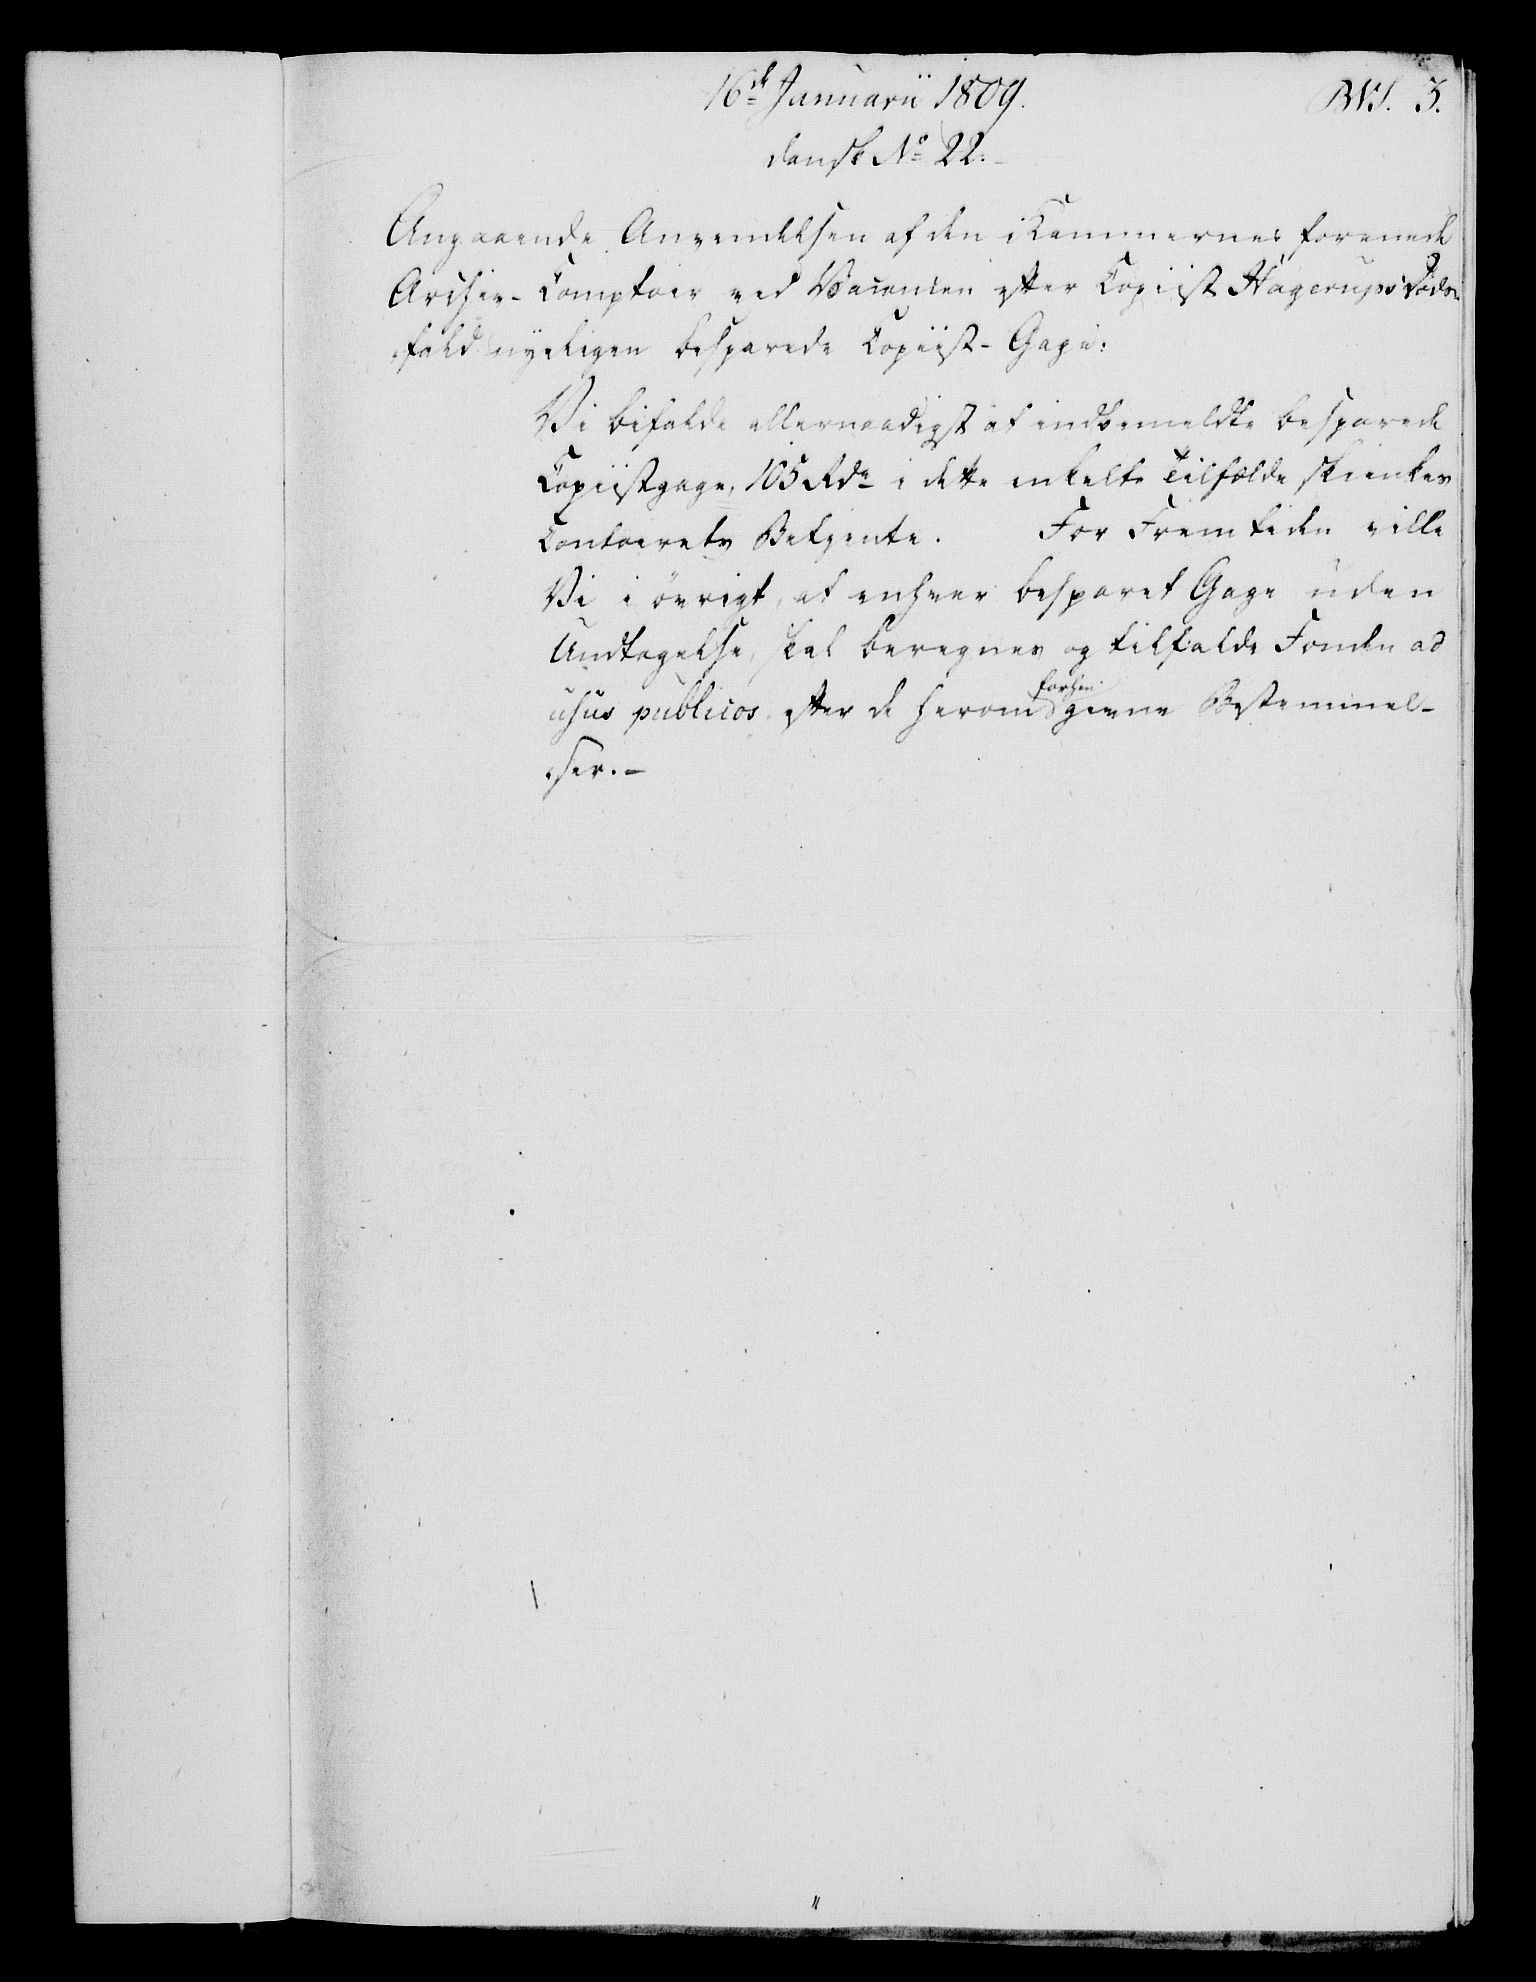 16de Januarii 1809. BVS. 3.
dansk No 22.
Angaaende Anvendelsen af den i Kammernes forenede
Archiv-Comptoir ved Vacancen efter Copiist Hagerups Döds-
fald nyeligen besparede Copiist-Gage:
Vi bifalde allernaadigst at indbemeldte besparede
Copiistgage, 105 Rdr i dette enkelte Tilfælde skienkes
Contoirets Betjente. For Fremtiden ville
Vi i övrigt, at enhver besparet Gage uden
Undtagelse, skal beregnes og tilfalde Fonden ad
usus publicos efter de herom forhen givne Bestemmel-
ser.-